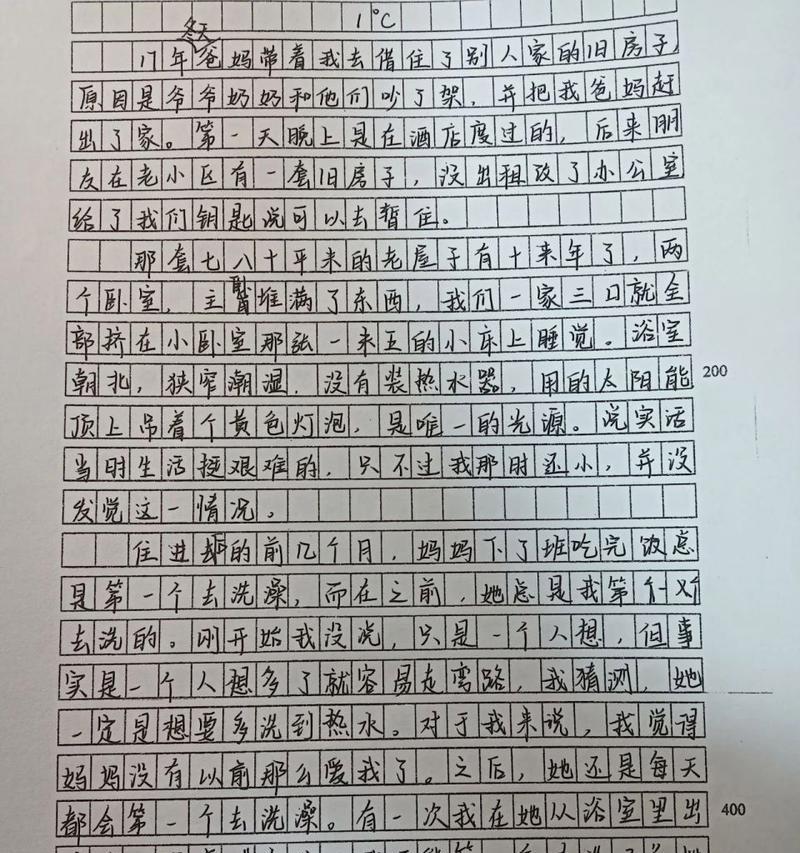 1℃
17年冬天爸妈带着我去借住了别人家的旧房子,
原因是爷爷奶奶和他们吵了架,并把我爸妈赶
出了家。第一天晚上是在酒店度过的,后来朋
友在老小区有一套旧房子,没出租改了办公室
给了我们钥匙说可以去暂住。
那套七八十平米的老屋子有十来年了,两
个卧室,主卧堆满了东西,我们一家三口就全
部挤在小卧室那张一米五的小床上睡觉。浴室
朝北,狭窄潮湿,没有装热水器,用的太阳能
200
顶上吊着个黄色灯泡,是唯一的光源。说实话
当时生活挺艰难的,只不过我那时还小,并没
发觉这一情况。
住进去的前几个月,妈妈下了班吃完饭总
是第一个去洗澡,而在之前,她总是我第一个
去洗的。刚开始我没说,只是一个人想,但事
实是一个人想多了就容易走弯路,我猜测,她
一定是想要多洗到热水。对于我来说,我觉得
妈妈没有以前那么爱我了。之后,她还是每天
都会第一个去洗澡。有一次我在她从浴室里出
400